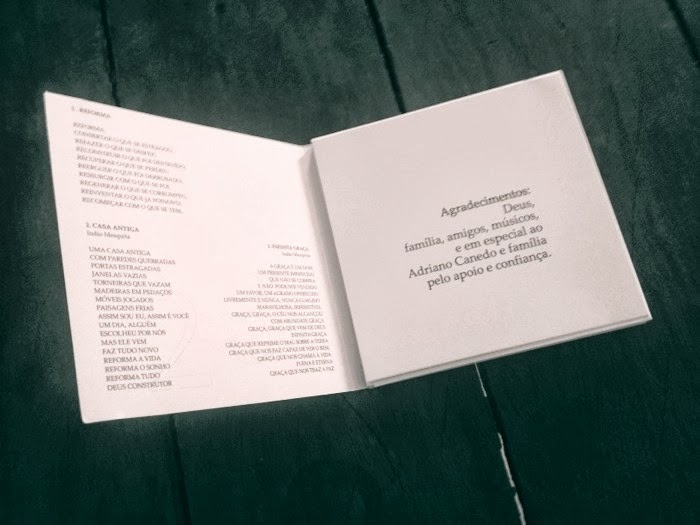 1. REFORMA
REFORMA
CONSERTAR O QUE SE ESTRAGOU,
REFAZER O QUE SE DESFEZ,
RECONSTRUIR O QUE FOI DESTRUÍDO
RECUPERAR O QUE SE PERDEU,
REERGUER O QUE FOI DERRUBADO,
RESSURGIR COM O QUE SE FOI,
REGENERAR O QUE SE CORROMPEU,
REINVENTAR O QUE JÁ
RECOMEÇAR COM O QUE SE TEM.
2. CASA ANTIGA
Índio Mesquita
UMA CASA ANTIGA
COM PAREDES QUEBRADAS
PORTAS ESTRAGADAS
JANELAS VAZIAS
TORNEIRAS QUE VAZAM
MADEIRAS EM PEDAÇOS
MÓVEIS JOGADOS
PAISAGENS FRIAS
ASSIM SOU EU, ASSIM É VOCÊ
UM DIA, ALGUÉM
ESCOLHEU POR NÓS
MAS ELE VEM
FAZ TUDO NOVO
REFORMA A VIDA
REFORMA O SONHO
REFORMA TUDO
DEUS CONSTRUTOR
3. INFINITA GRAÇA
Índio Mesquita
A GRAÇA É UM DOM
UM PRESENTE IMERECIDO
QUE NÃO SE COMPRA
E NÃO PODE SER VENDIDO
UM FAVOR, UM AGRADO OFERECIDO
LIVREMENTE E NUNCA, NUNCA
MARAVILHOSA, IRRESISTÍVEL
GRAÇA, GRAÇA, O CÉU NOS ALCANÇOU
COM ABUNDANTE GRAÇA
GRAÇA, GRAÇA QUE VEM DE DEUS
INFINITA GRAÇA
GRAÇA QUE REPRIME O MAL SOBRE A TERRA
GRAÇA QUE NOS FAZ CAPAZ DE VER O BEM
GRAÇA QUE NOS CHAMA À VIDA
PLENA E ETERNA
GRAÇA QUE NOS TRAZ A PAZ
Agradecimentos:
Deus,
família, amigos, músicos,
e em especial ao
Adriano Canedo e família
pelo apoio e confiança.